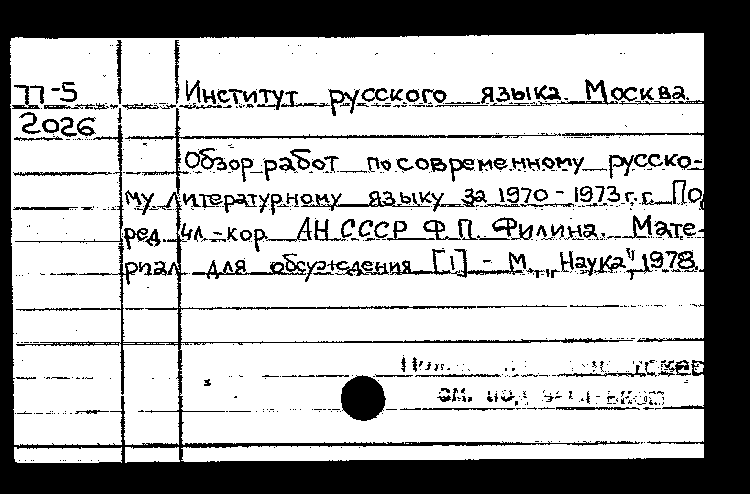 П-5
2026
Институт русского языка. Москва
Обзор работ по современному русско-
му литературному языку за 1970-1973 г.г. По
ред чл-кор АН СССР Ф.П. Филина. Мате-
риал для обсуждения [1] - М., „Наука", 1978.
см. под